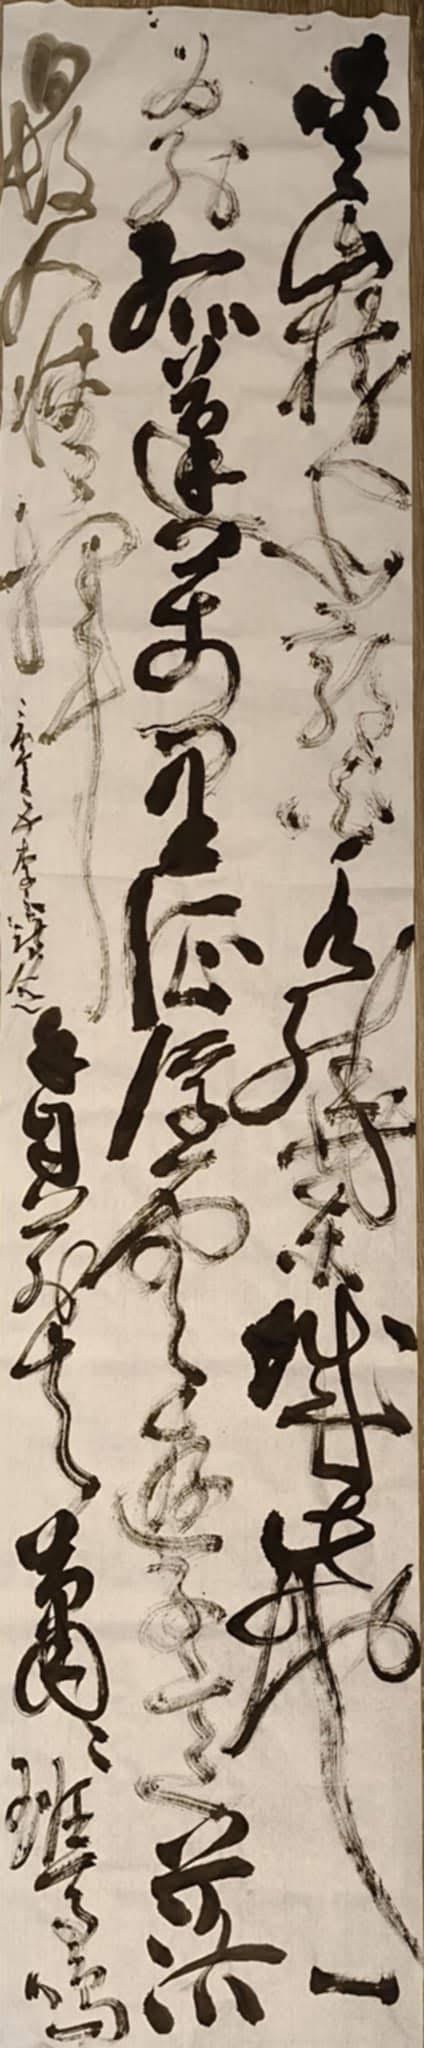 青山橫北郭白水繞東城此地一
为别孤蓬萬里征浮雲遊子意落
日故人情揮手自茲去蕭蕭班馬鳴
李白詩